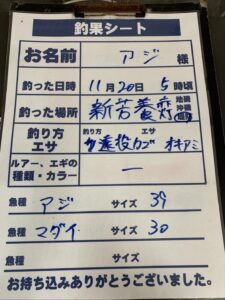 釣果シート
お名前 アジ 様
釣った日時 11月20日 5時頃
釣った場所 新苫養灯
釣り方 エサ 釣り方 エサ
遠投カゴ オキアミ
ルアー、エギの種類・カラー ー
魚種 アジ サイズ 39
魚種 マダイ サイズ 30
魚種 サイズ
お持ち込みありがとうございました。